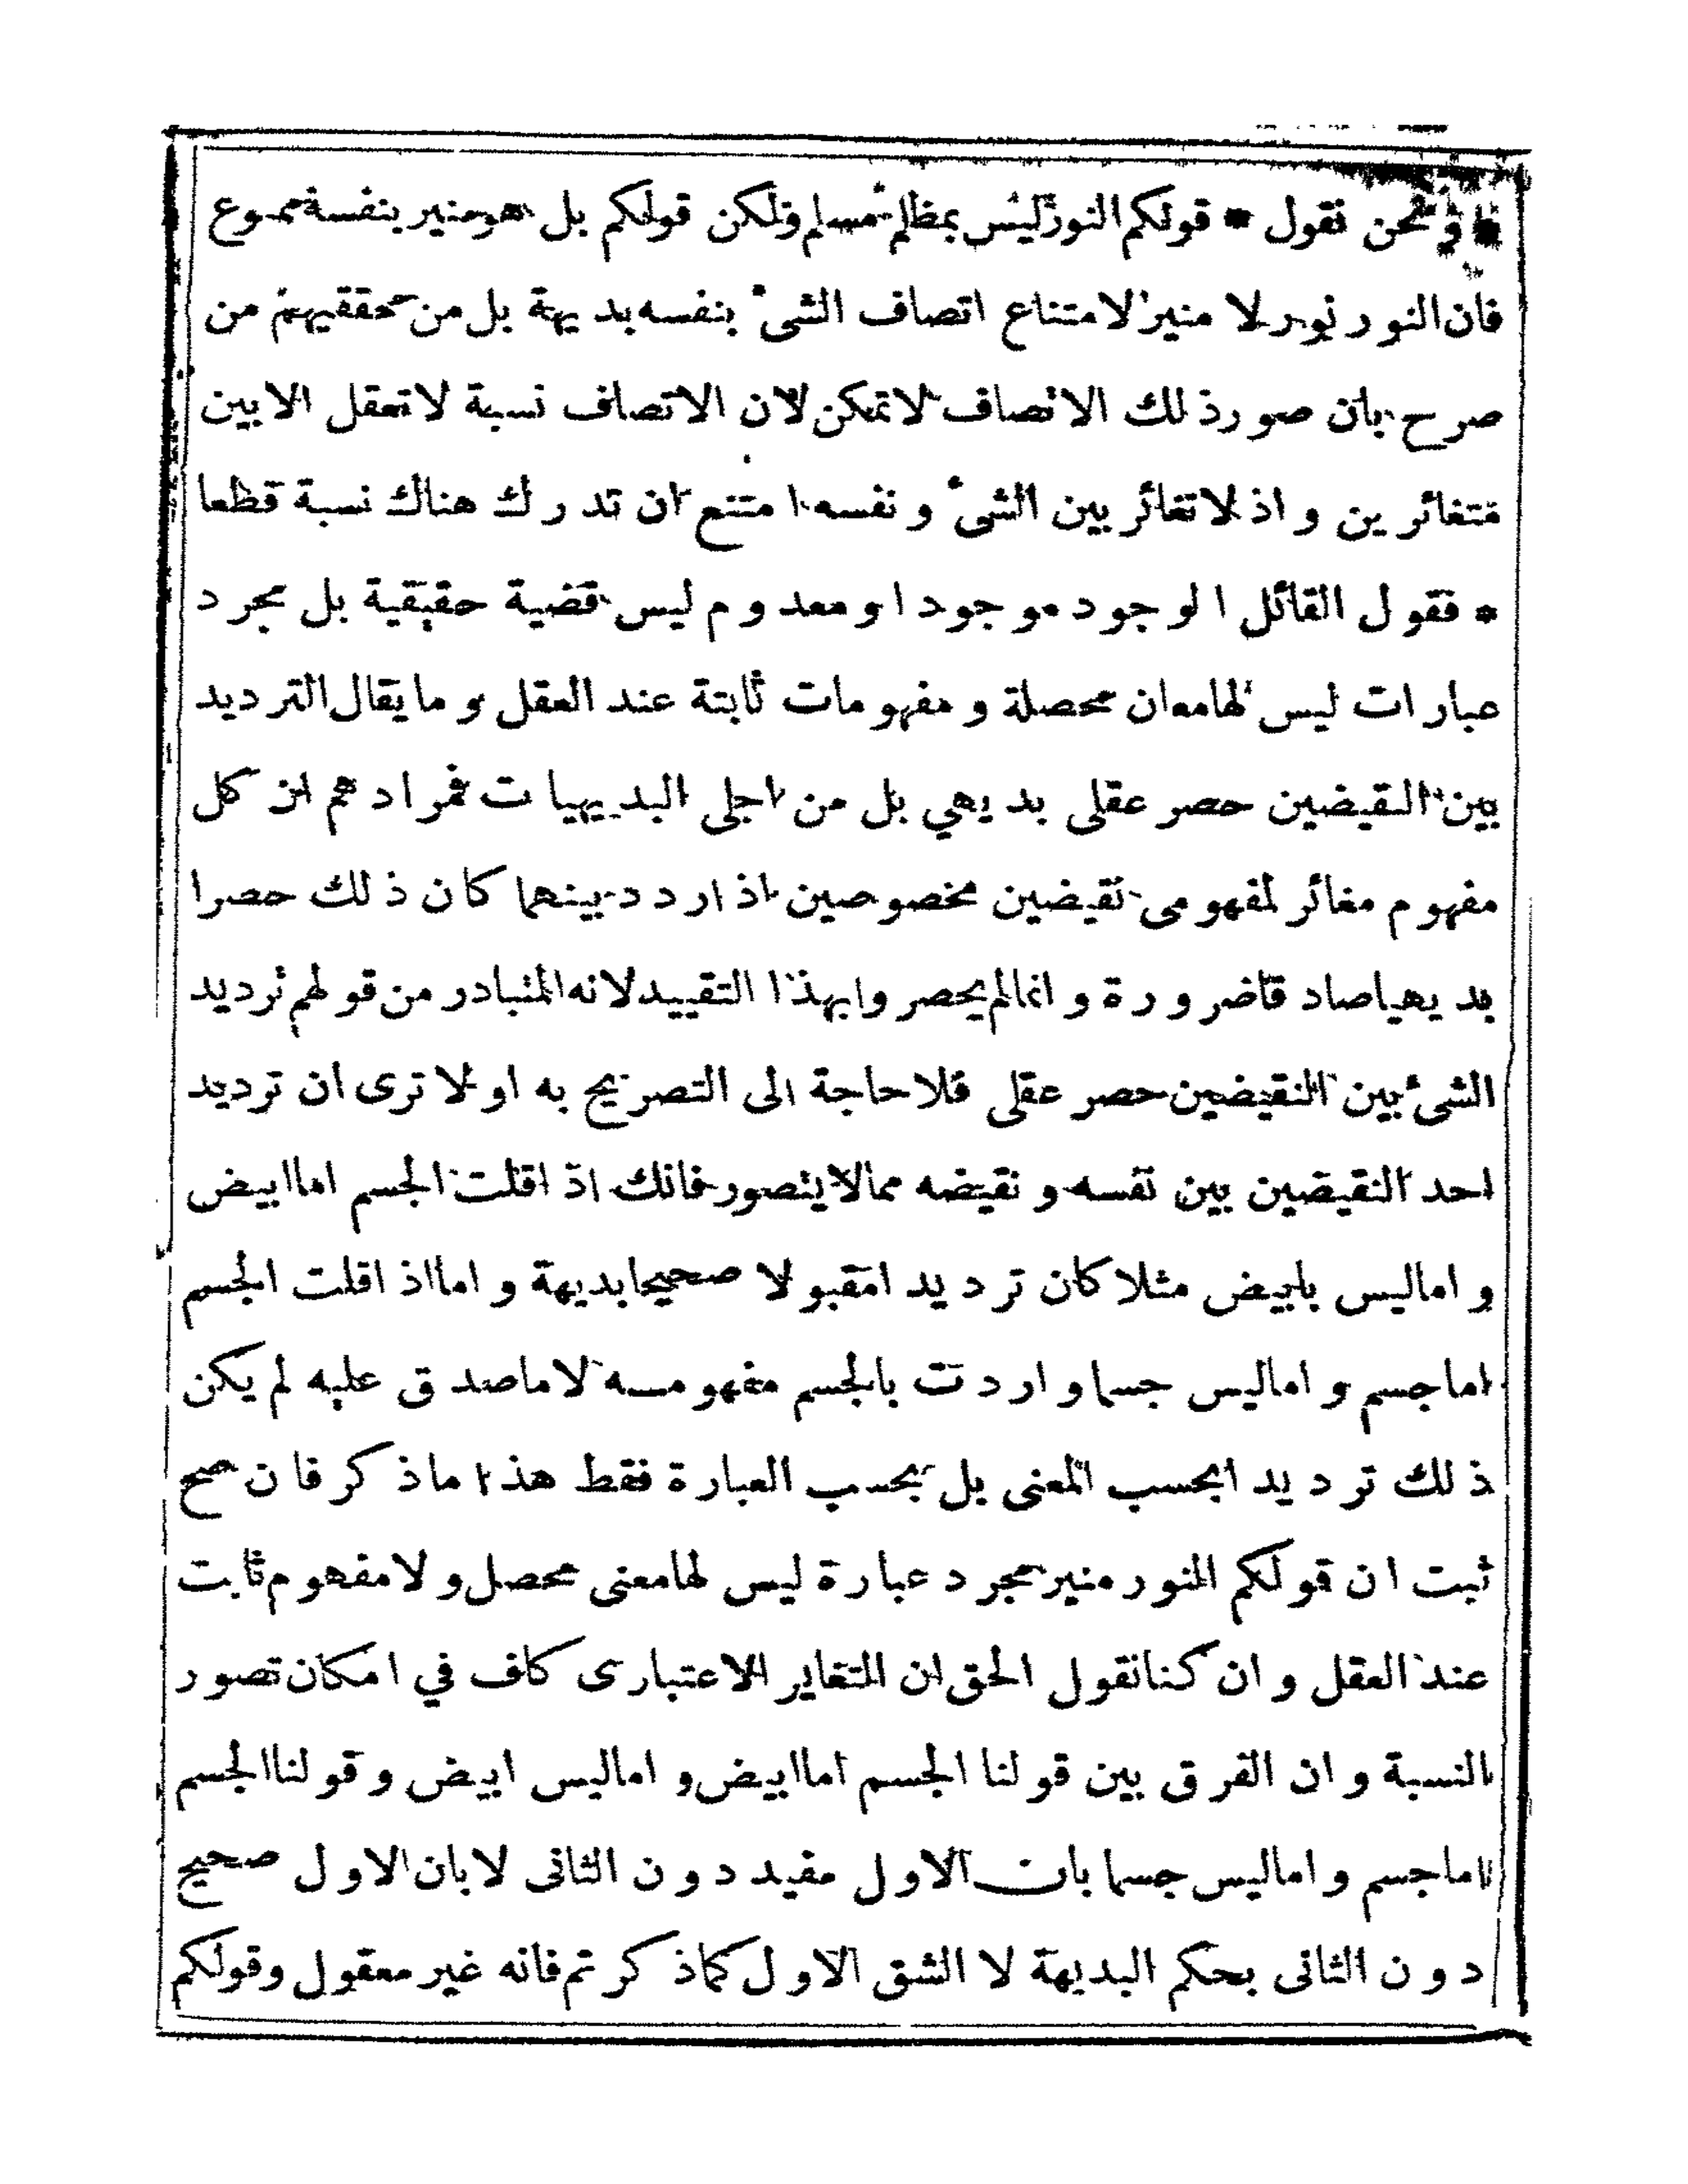 * ونحن نقول * قولكم النور ليس بمظلم مسلم ولكن قولكم بل هو منير بنفسه ممنوع
فان النور نور لا منير لامتناع اتصاف الشیٔ بنفسه بديهة بل من محققيهم من
صرح بان صورذلك الاتصاف لاتمكن لان الاتصاف نسبة لاتعقل الابين
متغائرين واذ لاتغائر بين الشیٔ ونفسه امتنع ان تدرك هناك نسبة قطعا
* فقول القائل الوجود موجود او معدوم ليس قضية حقيقية بل مجرد
عبارات ليس لهامعان محصلة ومفهومات ثابتة عند العقل ومايقال الترديد
بين النقيضين حصر عقلی بديهي بل من اجلی البديهيات فمرادهم ان كل
مفهوم مغائر لمفهومی نقيضين مخصوصين اذاردد بينهما كان ذلك حصرا
بديهياصادقاضرورة وانمالم يحصروابهذا التقييد لانه المتبادر من قولهم ترديد
الشیٔ بين النقيضين حصر عقلی فلاحاجة الى التصريح به اولاترى ان ترديد
احد النقيضين بين نفسه ونقيضه ممالايتصور فانك اذاقلت الجسم اماابيض
واماليس بابيض مثلاكان ترديدامقبولا صحيحابديهة وامااذاقلت الجسم
اماجسم واماليس جسما واردت بالجسم مفهومه لاماصدق عليه لم يكن
ذلك ترديدابحسب المعنى بل بحسب العبارة فقط هذا ماذكر فان صح
ثبت ان قولكم النور منير مجرد عبارة ليس لهامعنى محصل ولامفهوم ثابت
عند العقل وان كنانقول الحق ان التغاير الاعتباری كاف في امكان تصور
النسبة وان الفرق بين قولنا الجسم اماابيض واماليس ابيض وقولناالجسم
اماجسم واماليس جسما بان الاول مفيد دون الثانی لابان الاول صحيح
دون الثانی بحكم البديهة لا الشق الاول كماذكرتم فانه غير معقول وقولكم